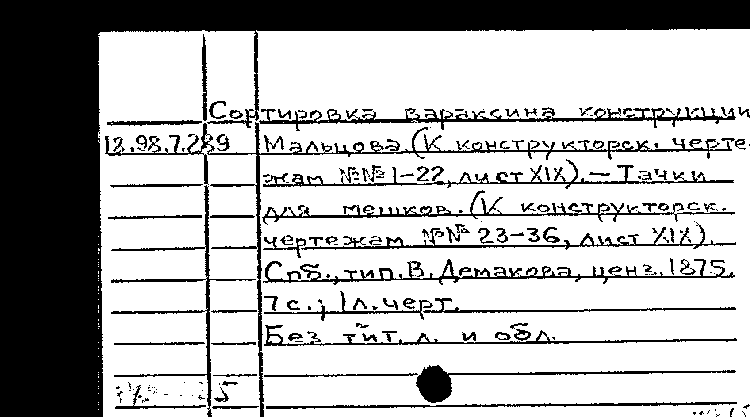 Сортировка вараксина конструкции
18.98.7.289 Мальцова. (К конструкторск. черте-
жам №№ 1-22, лист XIX). — Тачки
для мешков. (К конструкторск.
чертежам №№ 23-36, лист XIX).
Спб., тип. В. Демакова, ценз. 1875.
7 с.; 1 л. черт.
Без тит. л. и обл.